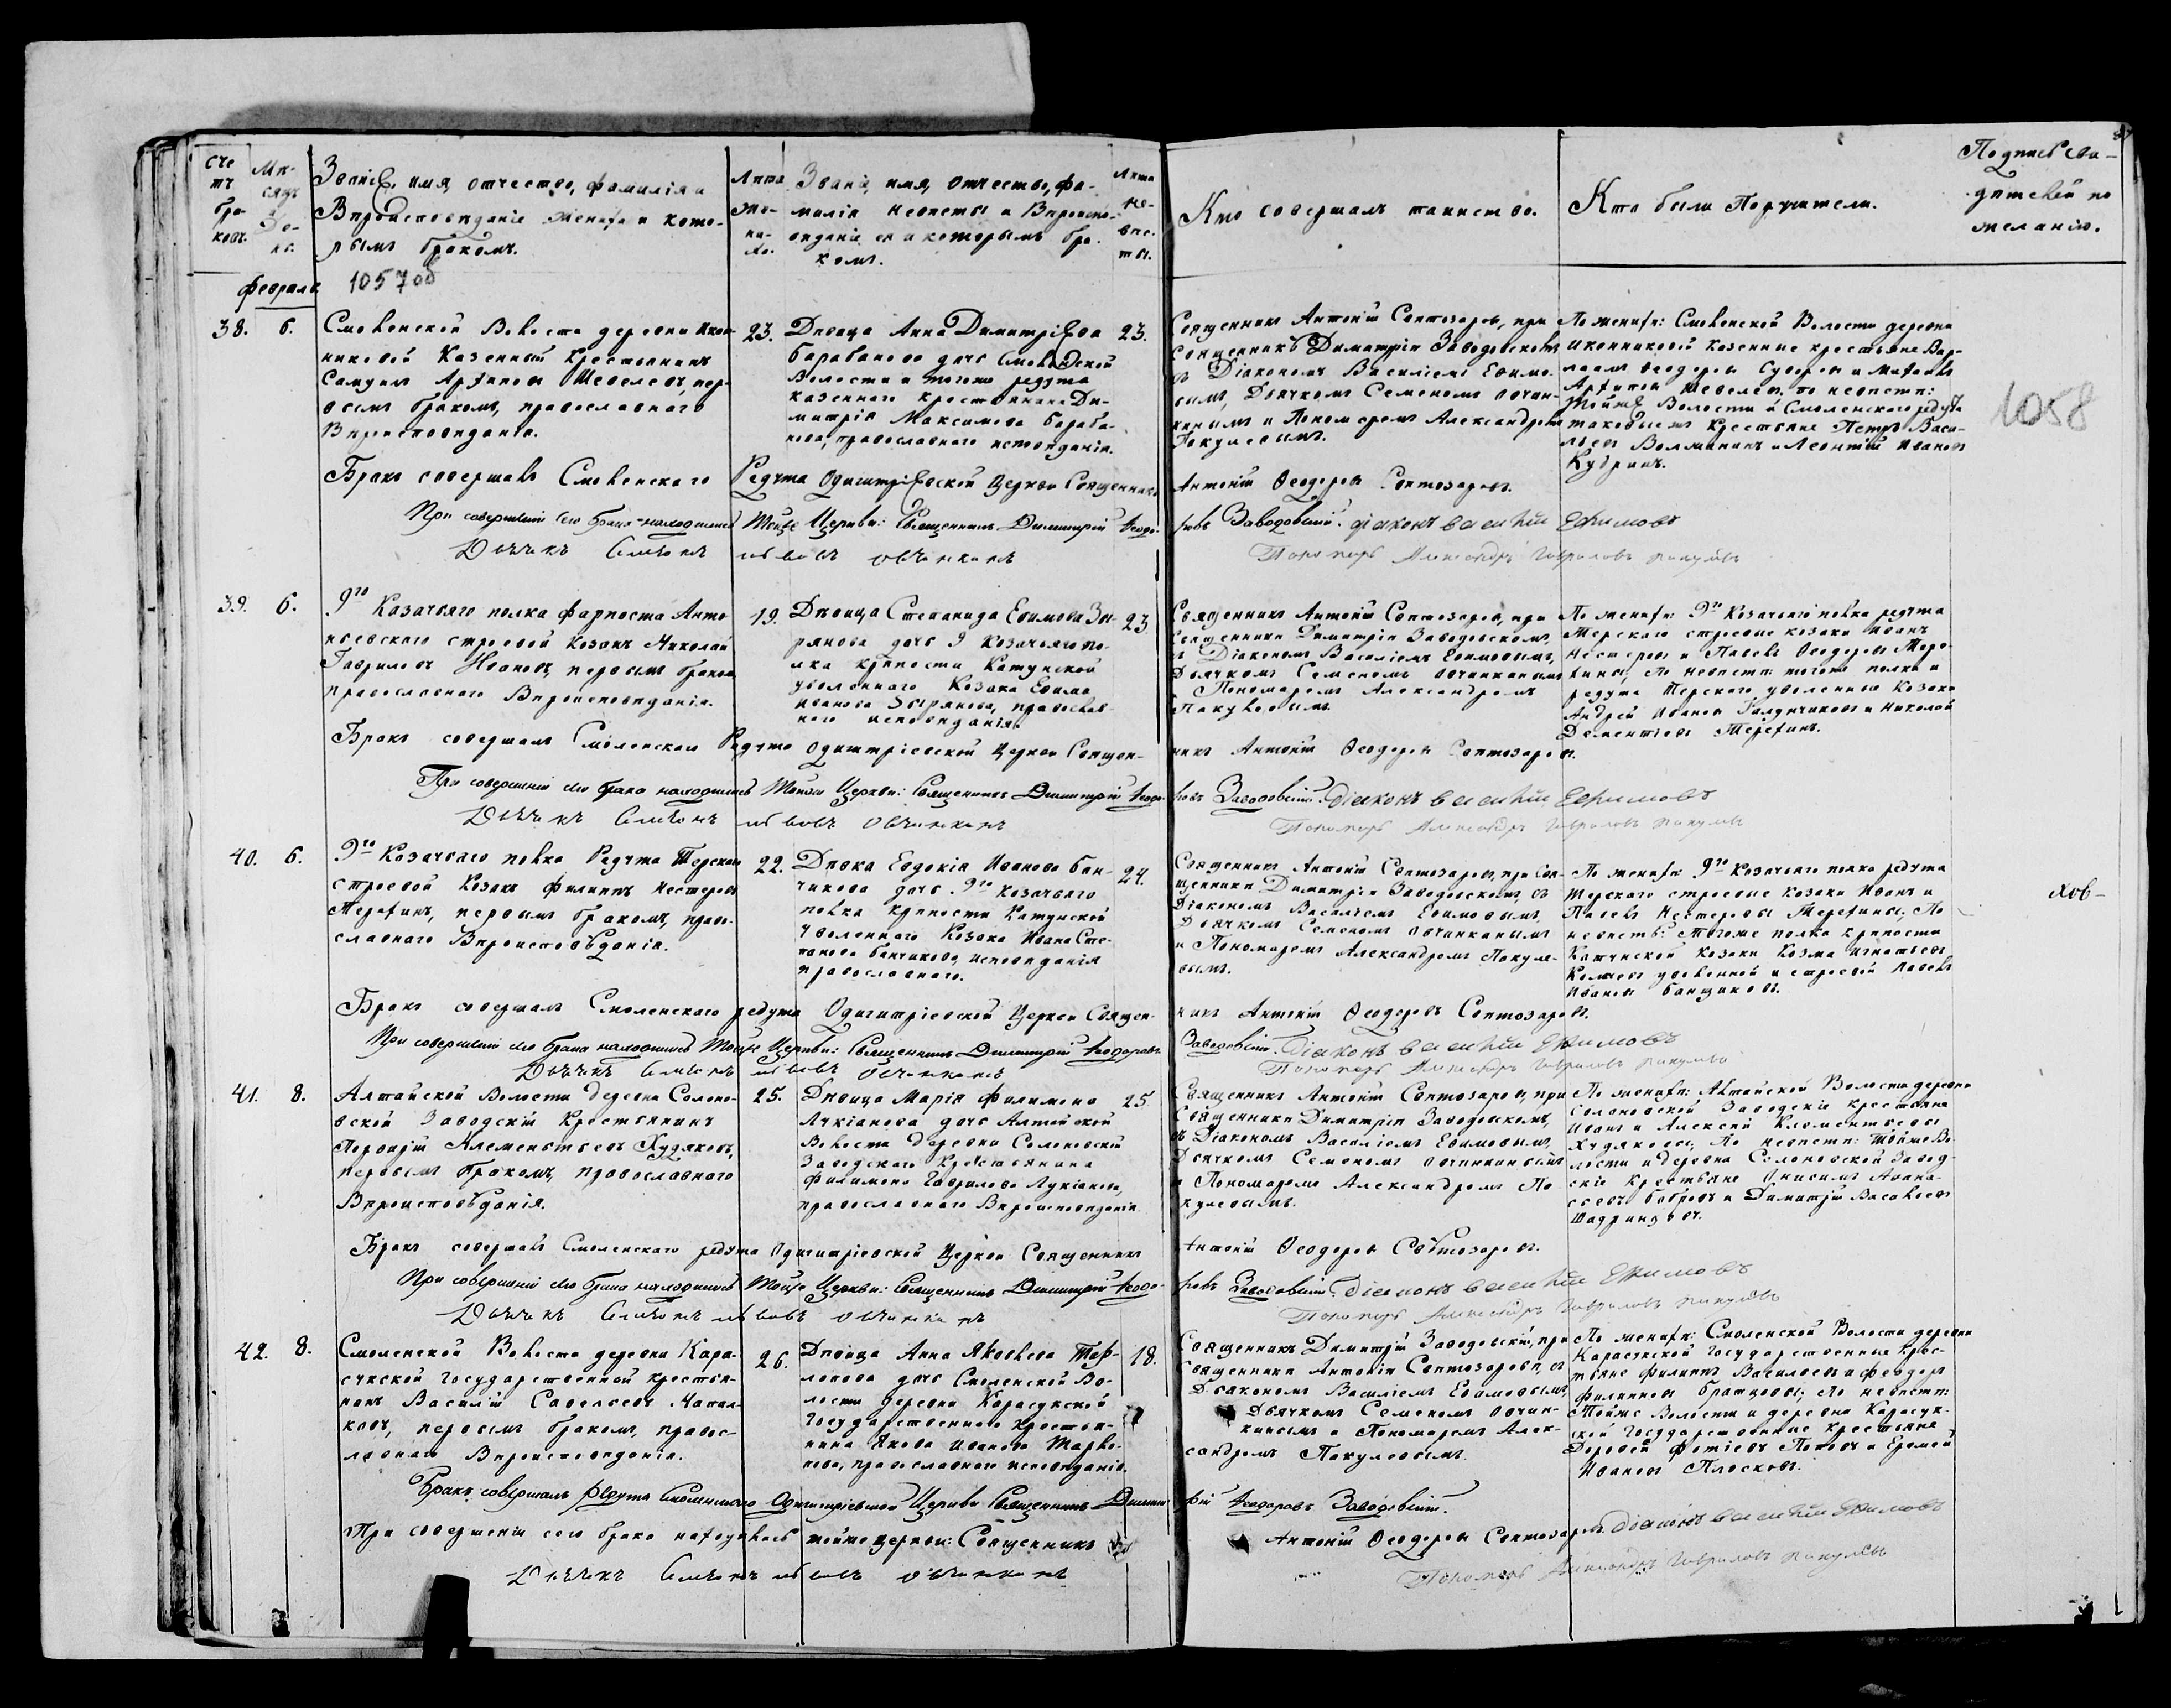 Сче
тъ
бра-
ковъ.
Мѣ-
сяцъ
и де-
нь.
Званіе, имя, отчество, фамилія и
Вѣроисповѣданіе жениха и кото-
рымъ бракомъ.
Лѣта
же-
ни-
ха.
Званіе, имя, отчество, фа-
милія невѣсты и Вѣроиспо-
вѣданіе ея и которымъ бра-
комъ.
Лѣта
не-
вѣс-
ты.
Кто совершалъ таинство.
Кто были Поручители.
Подпись сви-
дѣтелей по
желанію.
февраля
1057об
38. 6.
Смоленской Волости деревни Икон-
никовой Казенный Крестьянинъ
Самуилъ Архиповъ Шевелевъ, пер-
вымъ бракомъ, православнаго
Вѣроисповѣданія.
23.
Дѣвица Анна Димитріева
Барабанова дочь Смоленской
Волости и тогоже редута
казеннаго крестьянина Ди-
митрія Максимова Бараба-
нова, православнаго исповѣданія.
23.
Священникъ Антоній Свѣтозаровъ, при
Священникѣ Димитріи Заводовскомъ
съ Діакономъ Василіемъ Ефимо-
вымъ, Дьячкомъ Семеномъ Овчин-
кинымъ и Пономаремъ Александромъ
Пакулевымъ.
По женихѣ: Смоленской Волости деревни
Иконниковой казенные крестьяне Вар-
лаамъ Ѳедоровъ Суворовъ и Матвѣй
Архиповъ Шевелевъ, по невѣстѣ:
Тойже Волости и Смоленского редута
таковыежъ крестьяне Петръ Васи-
льевъ Волжанинъ и Леонтій Ивановъ
Кудринъ.
1058
Бракъ совершалъ Смоленскаго Редута Одигитріевской Церкви Священникъ Антоній Ѳеодоровъ Свѣтозаровъ.
При совершеніи сего брака находились Тойже Церкви: Священникъ Димитрій Ѳеодо- ровъ Заводовскій. діаконъ василій Ефимовъ
Дьячекъ Симеонъ Львовъ Овчинкинъ Пономарь Александръ Гавриловъ Пакулевъ
39. 6.
9го Козачьяго полка Фарпоста Анто-
ньевского строевой козакъ Николай
Гавриловъ Ивановъ, первымъ бракомъ
православного Вѣроисповѣданія.
19.
Дѣвица Степанида Ефимова Зы-
рянова дочь 9 Козачьяго по-
лка крѣпости Катунской
уволеннаго Козака Ефима
Иванова Зырянова, православ-
ного исповѣданія.
23
Священникъ Антоній Свѣтозаровъ, при
Священникѣ Димитріи Заводовскомъ,
съ Діакономъ Василіемъ Ефимовымъ,
Дьячкомъ Семеномъ Овчинкинымъ
и Пономаремъ Александромъ
Пакулевымъ.
По женихѣ 9го Козачьяго полка редута
Терского строевые козаки Иванъ
Нестеровъ и Павелъ Ѳедоровъ Тере-
хины, По невѣстѣ: тогоже полка и
редута Терского уволенные Козаки
Андрей Ивановъ Калунчиковъ и Николай
Дементіевъ Терехинъ.
Бракъ совершалъ Смоленскаго Редута Одигитріевской Церкви Священ- никъ Антоній Ѳеодоровъ Свѣтозаровъ.
При совершеніи сего брака находились Тойже Церкви: Священникъ Димитрій Ѳеодо- ровъ Заводовскій. діаконъ василій Ефимовъ
Дьячекъ Симеонъ Львовъ Овчинкинъ Пономарь Александръ Гавриловъ Пакулевъ
40. 6.
9го Козачьяго полка Редута Терскаго
строевой Козакъ Филиппъ Нестеровъ
Терехинъ, первымъ бракомъ, право-
славного Вѣроисповѣданія.
22.
Дѣвка Евдокія Иванова Бан-
чикова дочь 9го козачьяго
полка крѣпости Катунской
уволенного Козака Ивана Сте-
панова Банчикова, исповѣданія
православного.
24.
Священникъ Антоній Свѣтозаровъ, при Свя-
щенникѣ Димитріи Заводовскомъ, съ
Діакономъ Василіемъ Ефимовымъ,
Дьячкомъ Семеномъ Овчинкинымъ
и Пономаремъ Александромъ Пакуле-
вымъ.
По женихѣ: 9го Козачьяго полка редута
Терского строевые козаки Иванъ и
Павелъ Нестеровы Терехины, По
невѣстѣ: Тогоже полка крѣпости
Катунской козаки Козма Игнатьевъ
Колчевъ уволенной и строевой Павелъ
Ивановъ Банщиковъ.
хов-
Бракъ совершалъ Смоленского редута Одигитріевской Церкви Священ- никъ Антоній Ѳеодоровъ Свѣтозаровъ.
При совершеніи сего брака находились Тойже Церкви: Священникъ Димитрій Ѳеодоровъ Заводовскій. діаконъ василій Ефимовъ
Дьячекъ Симеонъ Львовъ Овчинкинъ Пономарь Александръ Гавриловъ Пакулевъ
41. 8.
Алтайской Волости деревни Солоно-
вской Заводскій Крестьянинъ
Порфирій Клементьевъ Худяковъ,
первымъ бракомъ, православного
Вѣроисповѣданія.
25.
Дѣвица Марія Филимона
Лукіанова дочь Алтайской
Волости деревни Солоновской
Заводского Крестьянина
Филимона Гаврилова Лукіанова,
православного Вѣроисповѣданія
25
Священникъ Антоній Свѣтозаровъ, при
Священникѣ Димитріи Заводовскомъ,
съ Діакономъ Василіемъ Ефимовымъ,
Дьячкомъ Семеномъ Овчинкинымъ
и Пономаремъ Александромъ Па-
кулевымъ.
По женихѣ: Алтайской Волости деревни
Солоновской Заводскіе крестьяне
Иванъ и Алексѣй Клементьевы
Худяковы; По невѣстѣ: Тойже Во-
лости и деревни Солоновской Завод-
скіе крестьяне Онисимъ Афана-
сьевъ Бобровъ и Димитрій Васильевъ
Шадринцовъ.
Бракъ совершалъ Смоленского редута Одигитріевской Церкви Священникъ Антоній Ѳеодоровъ Свѣтозаровъ.
При совершеніи сего брака находились Тойже Церкви: Священникъ Димитрій Ѳеодо- ровъ Заводовскій. діаконъ василій Ефимовъ
Дьячекъ Симеонъ Львовъ Овчинкинъ Пономарь Александръ Гавриловъ Пакулевъ
42. 8.
Смоленской Волости деревни Кара-
сукской Государственной крестья-
нинъ Василій Савельевъ Чапал-
ковъ, первымъ бракомъ, правос-
лавнаго Вѣроисповѣданія.
26.
Дѣвица Анна Яковлева Тар-
лопова дочь Смоленской Во-
лости деревни Карасукской
Государственного крестья-
нина Якова Иванова
православного исповѣданія.
18.
Священникъ Димитрій Заводовскій, при
Священникѣ Антоніи Свѣтозаровѣ, съ
Діакономъ Василіемъ Ефимовымъ,
Дьячкомъ Семеномъ Овчин-
кинымъ и Пономаремъ Алек-
сандромъ Пакулевымъ.
По женихѣ: Смоленской Волости деревни
Карасукской Государственные крес-
тьяне Филиппъ Васильевъ и Феодоръ
Филипповъ Братцовы; По невѣстѣ:
Тойже Волости и деревни Карасук-
ской Государственные крестьяне
Дороѳей Фотіевъ Поповъ и Еремей
Ивановъ Плосковъ.
Бракъ совершалъ редута Смоленского Одигитріевской Церкви Священникъ Димит- рій Ѳеодоровъ Заводовскій.
При совершеніи сего брака находились тойже церкви: Священникъ Антоній Ѳеодоровъ Свѣтозаровъ. діаконъ василій Ефимовъ
Дьячекъ Симеонъ Львовъ Овчинкинъ Пономарь Александръ Гавриловъ Пакулевъ